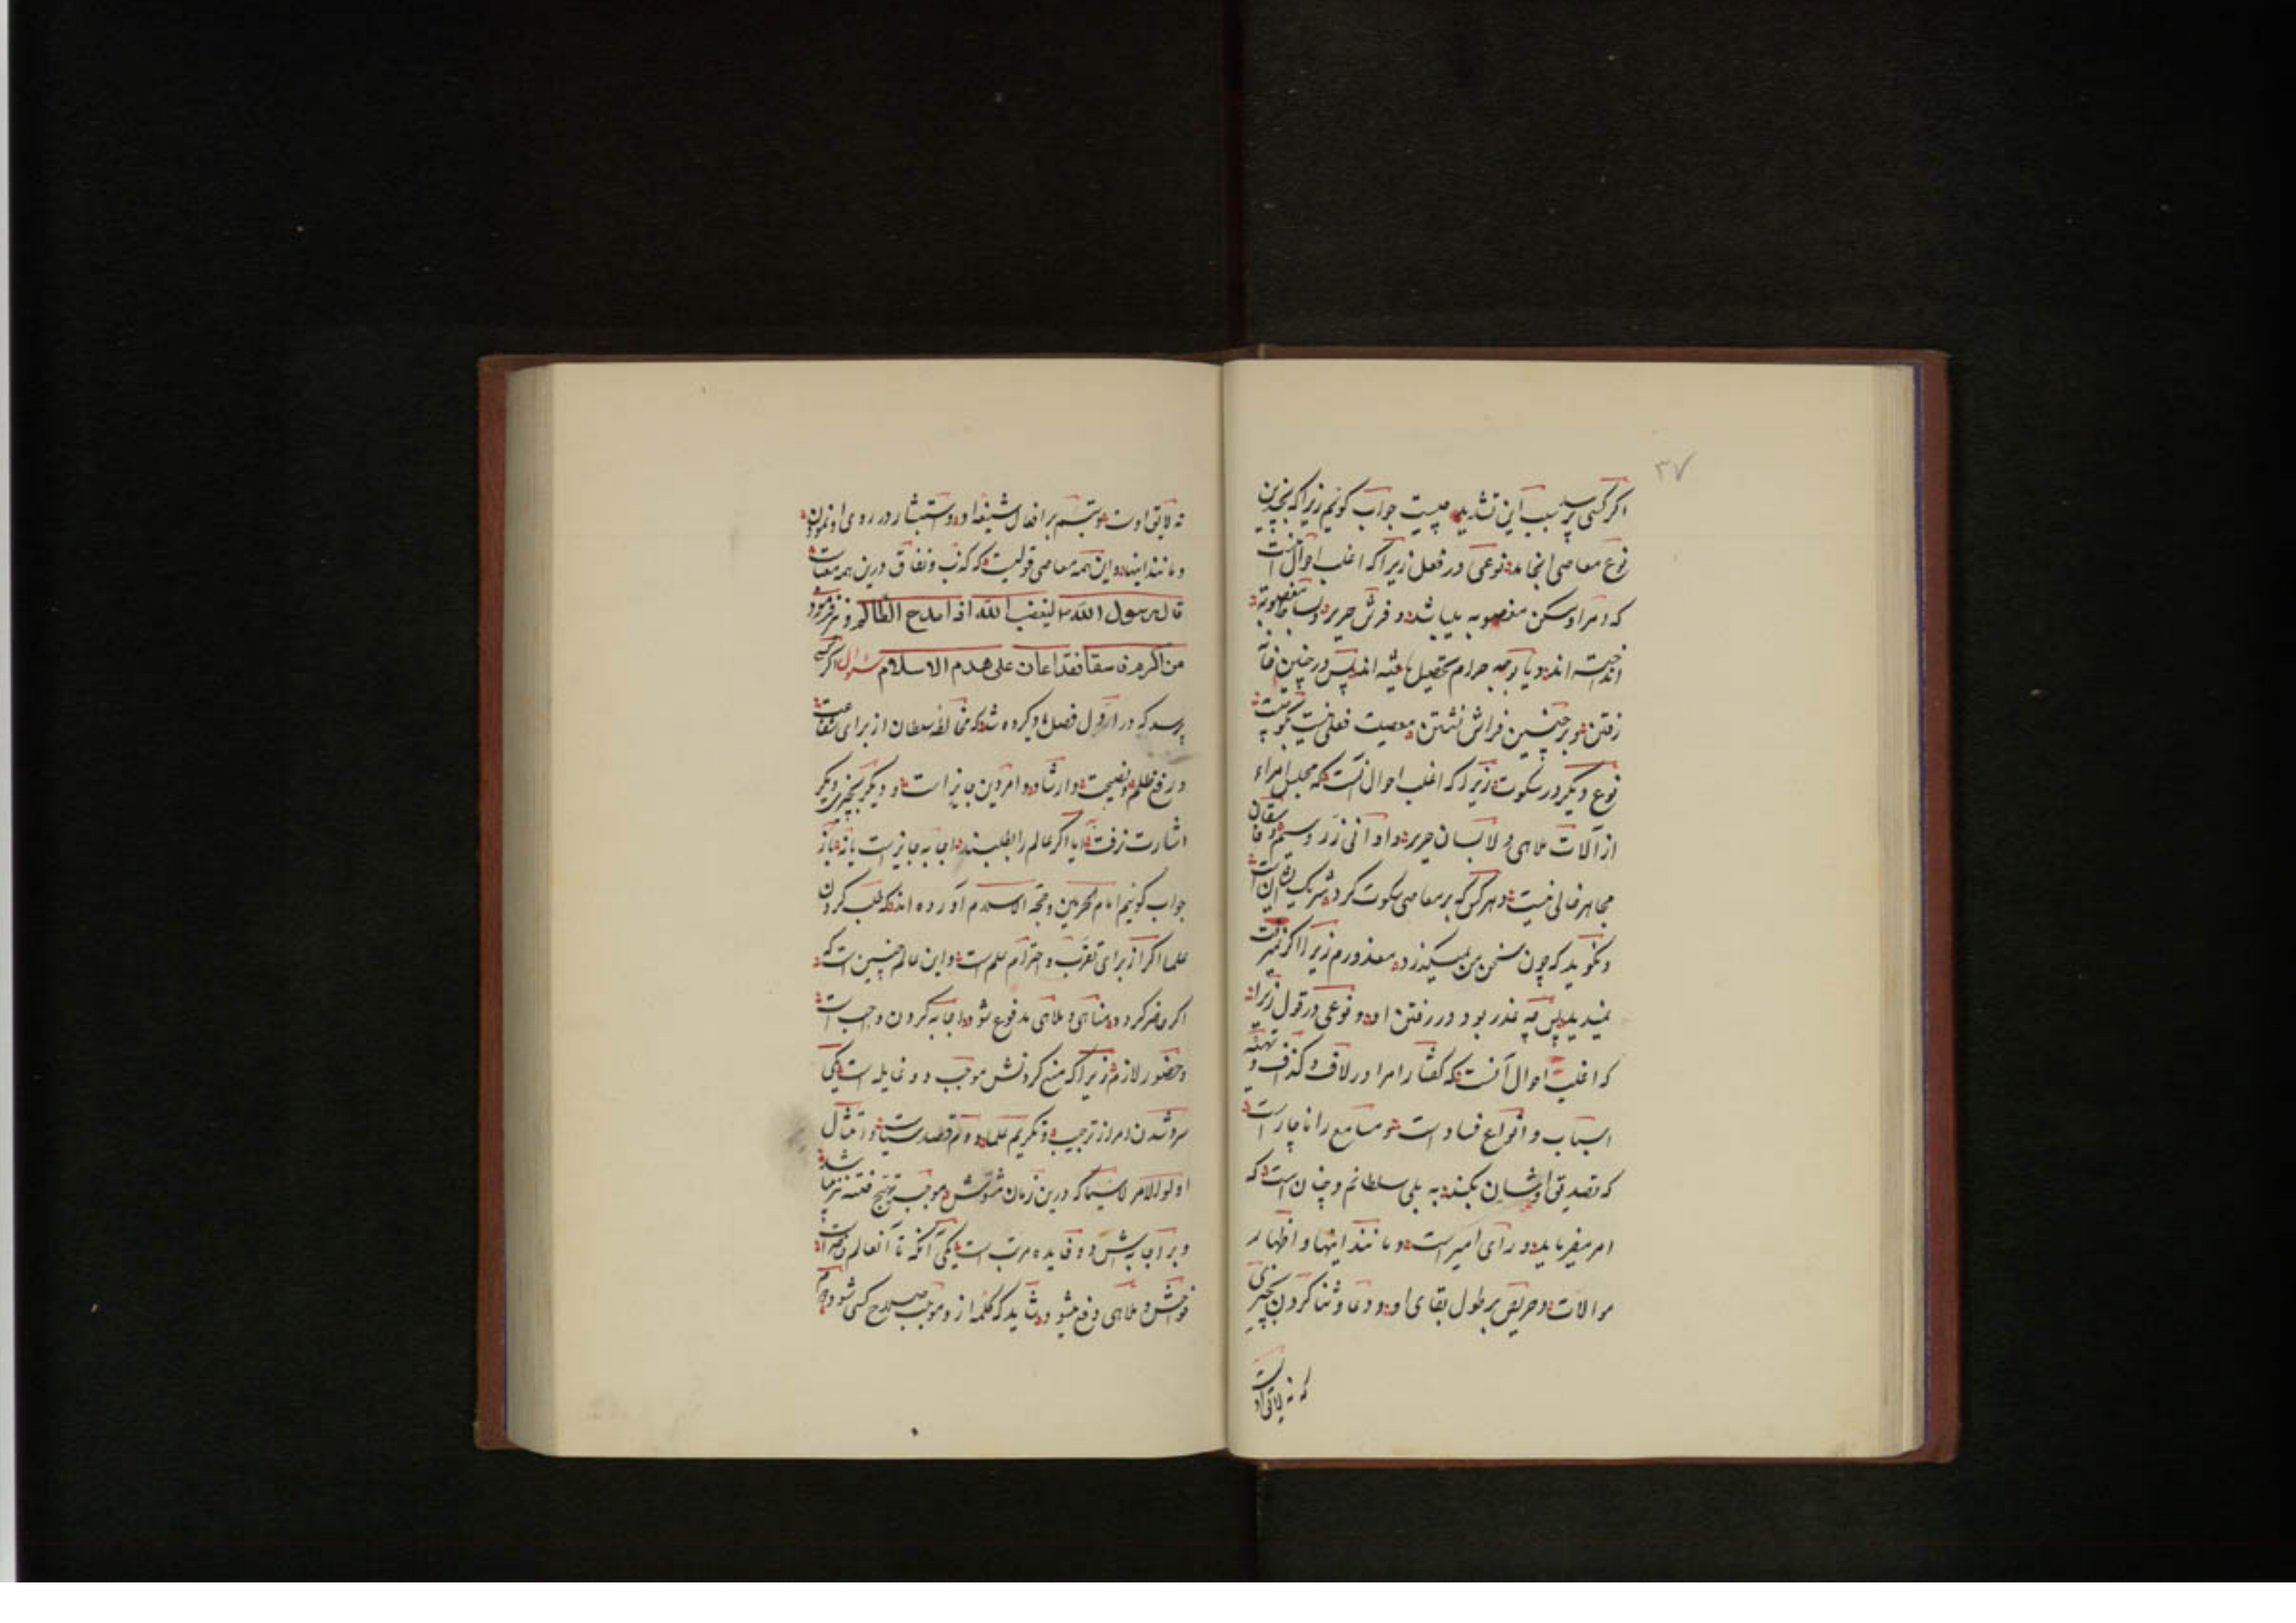 ۳۷
اکر کسی پرسد سبب این تشدید چیست جواب کوئیم زیرا که بچندین
نوع معاصی انجامد نوعی در فعل زیرا که اغلب احوال آنست
که در سکن مغصوبه باشد و فرش حریر و بساط مغصوبه
انداخته اند و یا بوجه حرام تحصیل یافته اند پس در چنین خانه
رفتن و بر چنین فراش نشتن معصیت فعلی نیست بکو چیست
نوع دیکر در سکوت زیرا که اغلب احوال آنست که مجلس امراء
از آلات ملاهی و لابسان حریر و اوانی زر و سیم و فاسقان
مجاهر خالی نیست و هر کس که بر معاصی سکوت کرد شریک آن است
و نکوید که چون سخن من نمیکیرد معذورم زیرا اکر نمیرفت
نمیدید پس چه عذر بود در رفتن او و نوعی در قول زیرا
که اغلب احوال آنست که کفتار امرا در لاف و کذاف و تهیئه
اسباب و انواع فساد است و مسامع را ناچار است
که تصدیق اوشان بکند به بلی سلطانم و چنان است که
امر میفرماید و رای امیر است و مانند اینها و اظهار
موالات و حریص بر طول بقای او و دعا و ثنا کردن بچیزی
که نه لایق اوست
نه لایق اوست و تبسم بر افعال شنیعه او و استبشار در روی او نمودن
و مانند اینها و این همه معاصی قولیست که کذب و نفاق درین همه معیات
قال رسول الله لیغضب الله اذا مدح الظالم و نیز فرمود
من اکرم فاسقا فقد اعان علی هدم الاسلام سؤال اکر کسی
پرسد که در اول فصل یاد کرده شد که مخالطه سلطان از برای شفاعت
و رفع ظلم و نصیحت و ارشاد و امر دین جایز است و دیکر بچیزی دیکر
اشارت نرفت آیا اکر عالم را طلبند اجابه جایز است یا نه باز
جواب کوئیم امام الحرمین و حجة الاسلام آورده اند که طلب کردن
علما اکر از برای تقرب و احترام علم است و این عالم چنین است که
اکر حاضر کردد مناهی و ملاهی مدفوع شود اجابه کردن واجب است
و حضور لازم زیرا که منع کردنش موجب دو غایله است یکی
سرد شدن امرا از ترحیب و تکریم علما و دوم قصد سیات و امتثال
اولوالامر لاسیما که درین زمان مشوش موجب تهیج فتنه نیز میباشد
و بر اجابه اش دو فایده مرتب است یکی آنکه تا آنعالم حاضر است
فواحش و ملاهی دفع میشود و شاید که کلمه ازو موجب صلاح کسی شود دوم